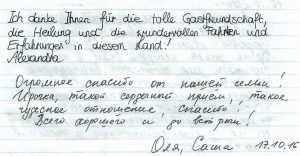 Ich danke Ihnen für die tolle Gastfreundschaft,
die Heilung und die wundervollen Fahrten und
Erfahrungen in diesem Land!
Alexandra
Огромное спасибо от нашей семьи!
такой сердечный приём, такое
чудесное отношение, спасибо!
Всего хорошего и до встречи!
Оля, Саша 17.10.15